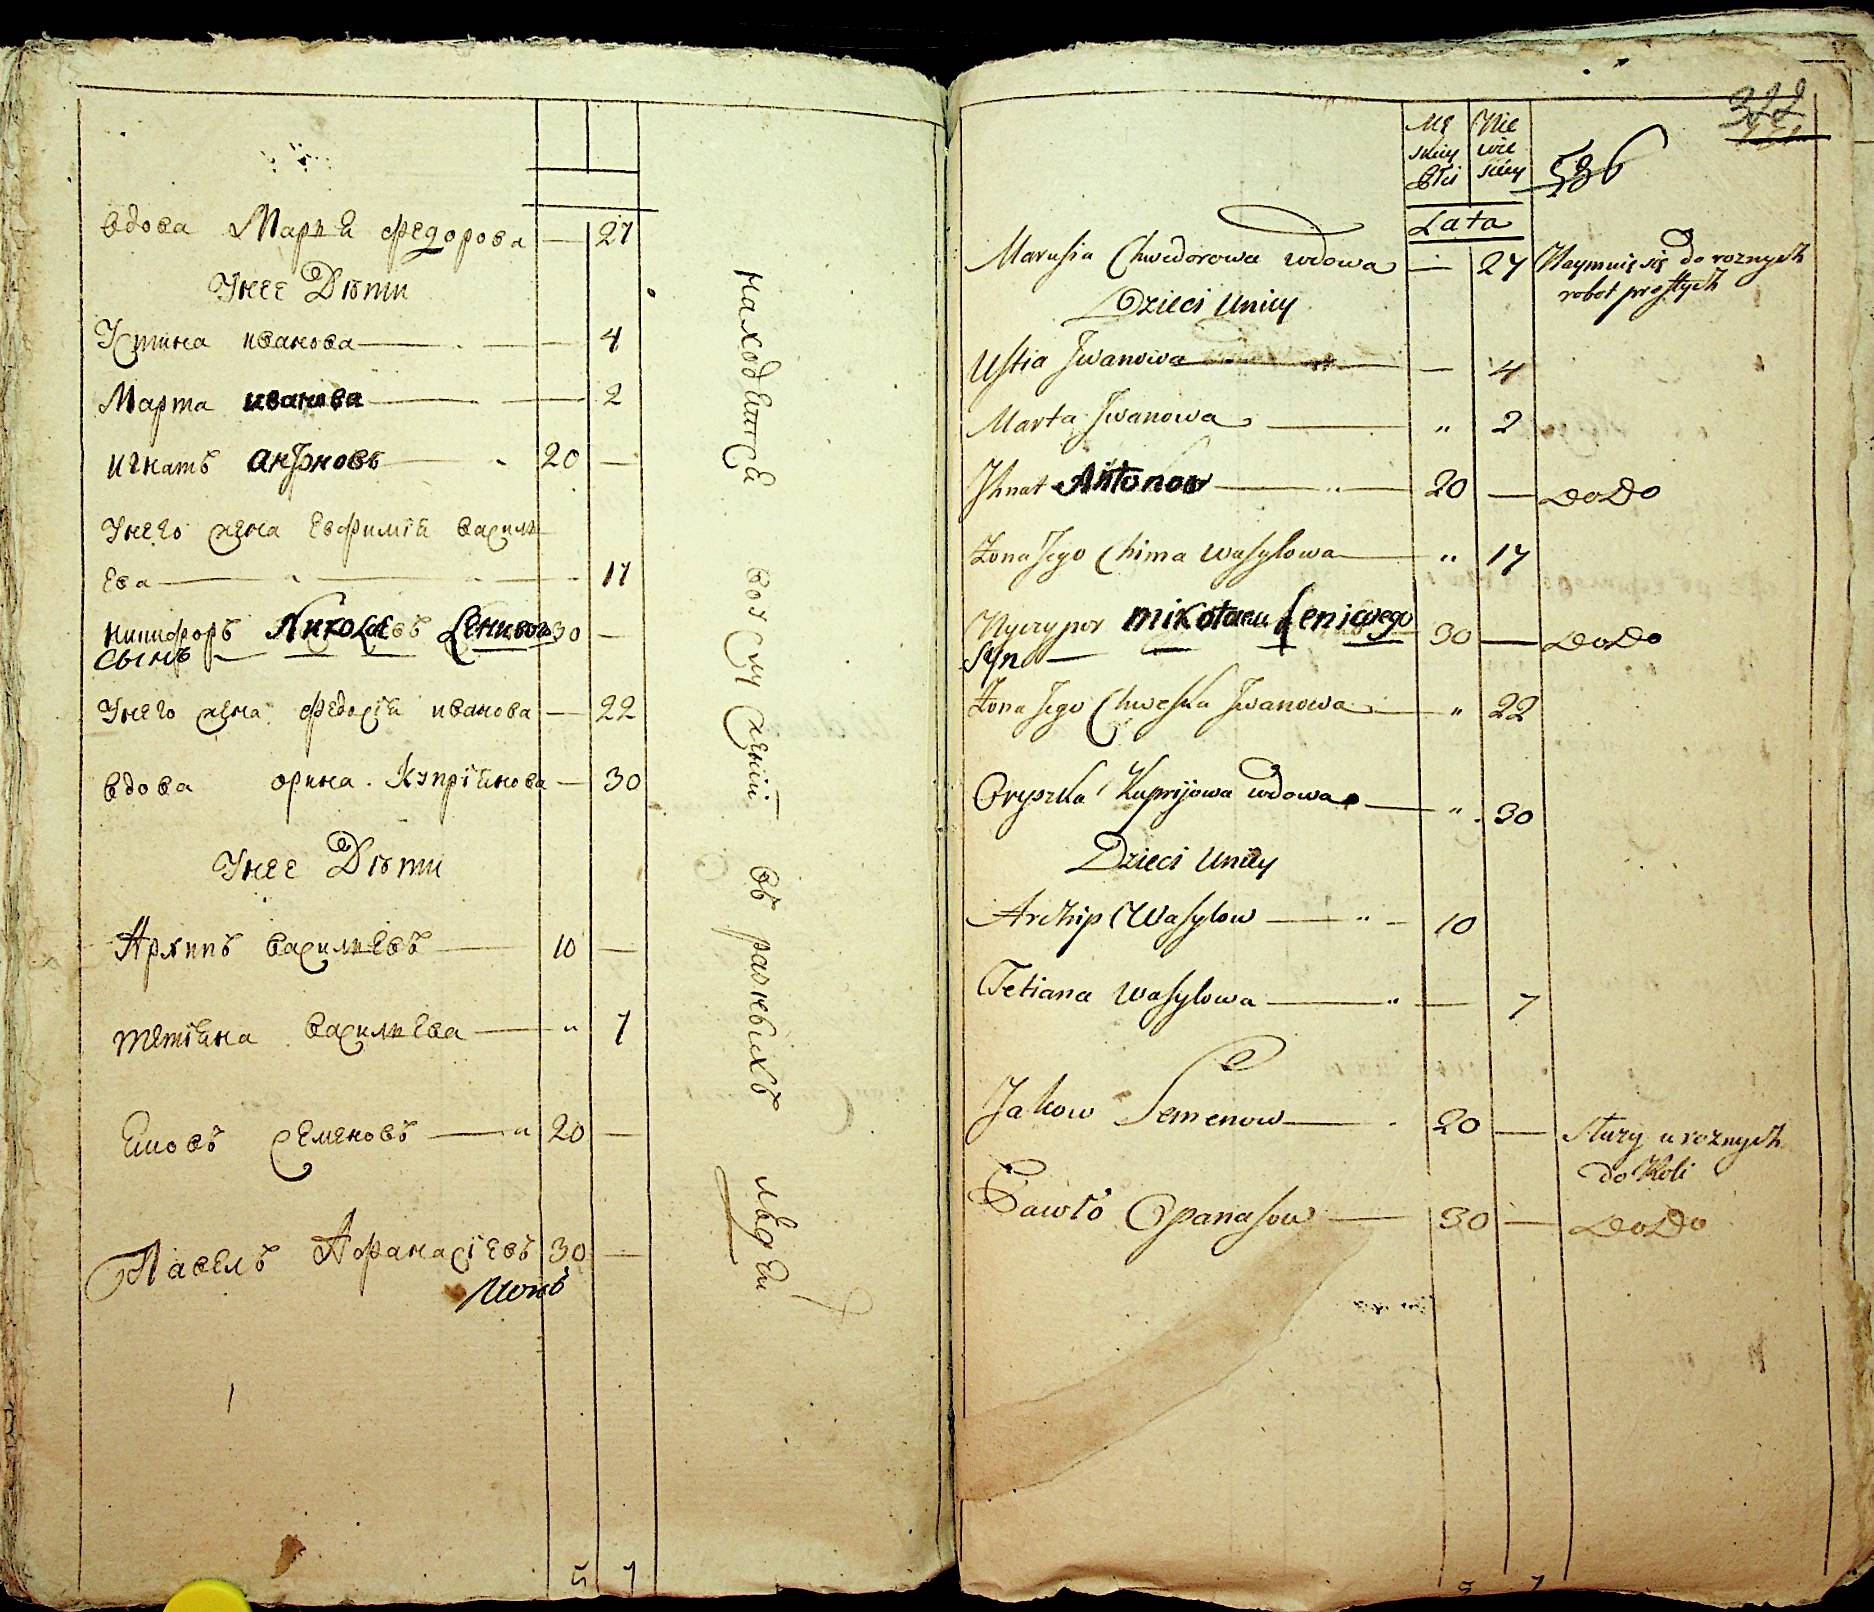 вдова Марья федорова — 27
Унее Дѣти
Устина иванова — 4
Марта иванова — 2
игнатъ антоновъ 20 —
Унего жена Евфимія василь
ева — 17
никифоръ Николаевъ Ленивого 30 —
сынъ
Унего жена федосія иванова — 22
вдова орина Купріянова — 30
Унее Дѣти
Архипъ васильевъ 10 —
тетіяна васильева " 7
Яковъ семеновъ " 20 —
Павелъ Афанасіевъ 30 —
5 7
находятся вослуженіи въ разныхъ людей
322
536
Mę Nie
skiey wie
Płci sciey
Lata
Marusia Chwedorowa wdowa — 27 Naymuie się do roznych
robot prostych
Dzieci Uniey
Ustia Jwanowa — 4
Marta Jwanowa " 2
Jhnat Antonow 20 — DoDo
Żona Jego Chima Wasylowa " 17
Nyczypor mikołaiu Leniwego 30 — DoDo
Syn
Żona Jego Chweska Jwanowa " 22
Oryszka Kuprijowa wdowa " 30
Dzieci Uniey
Archip Wasylow " 10
Tetiana Wasylowa " 7
Jakow Semenow 20 — służy u roznych
do Koli
Pawło Opanasow 30 — DoDo
5 7